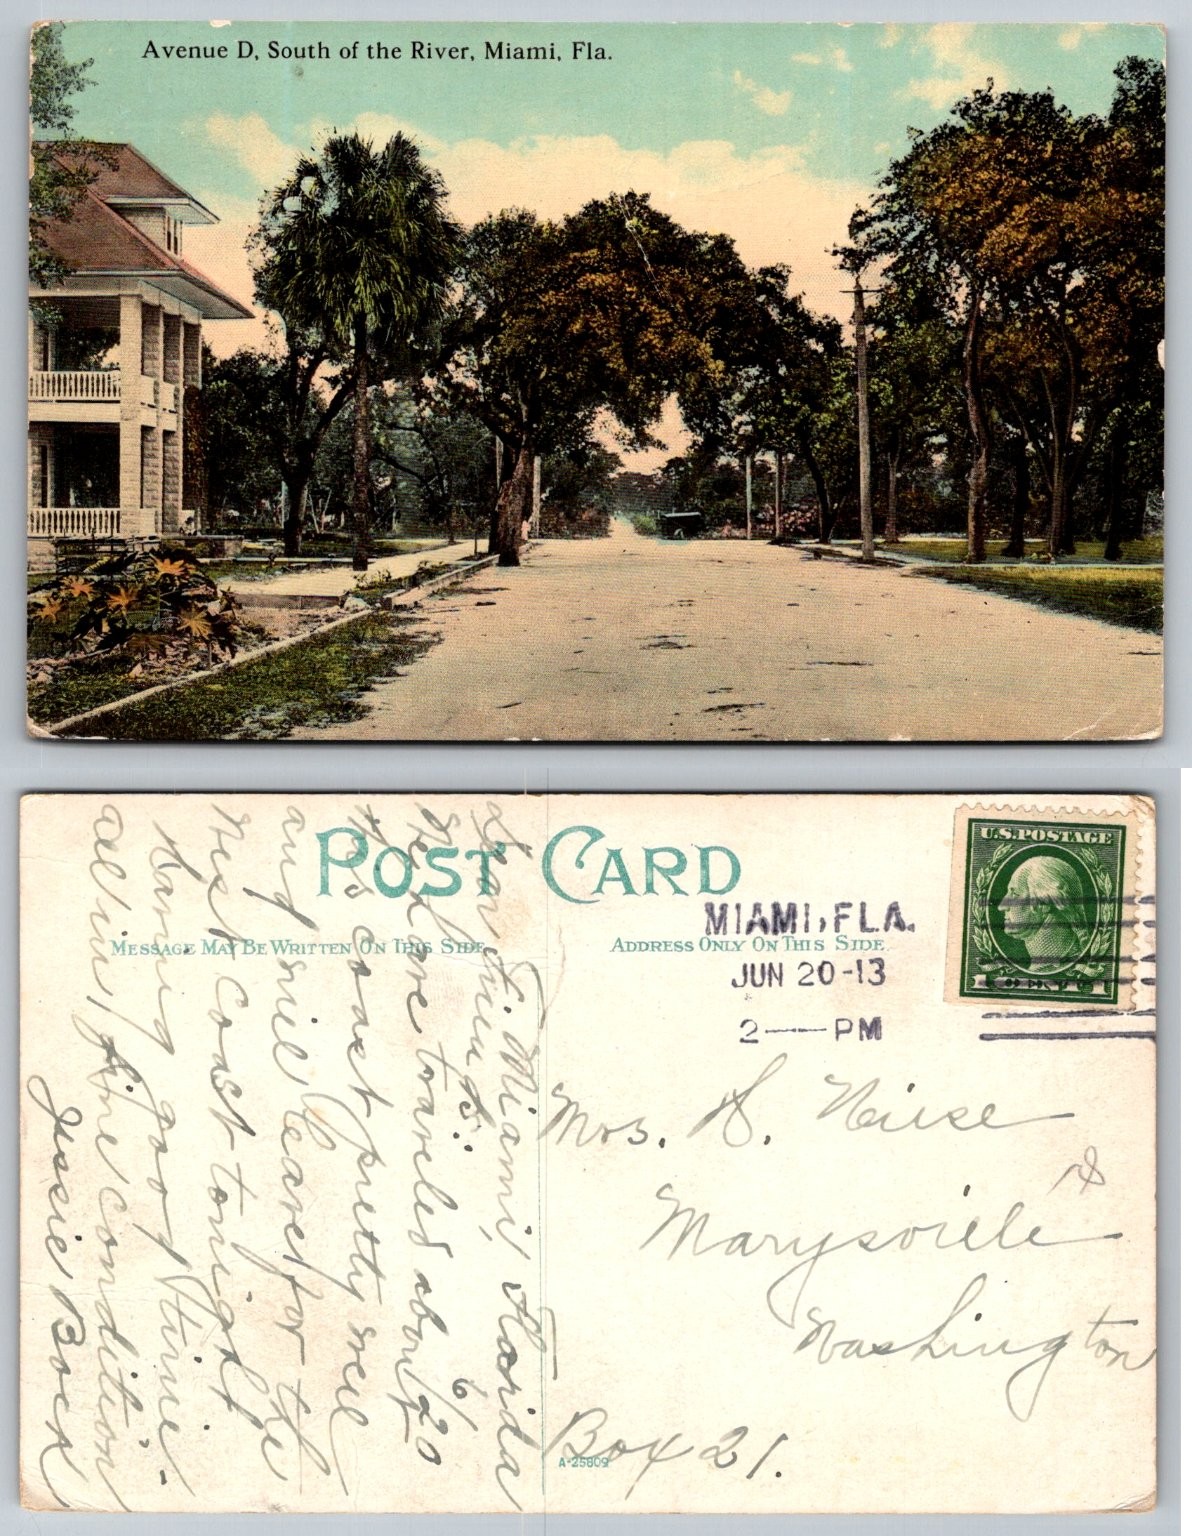 Avenue D, South of the River, Miami, Fla.
POST CARD
MESSAGE MAY BE WRITTEN ON THIS SIDE
ADDRESS ONLY ON THIS SIDE
U.S. POSTAGE
1 CENT 1
MIAMI, FLA.
JUN 20-13
2 — PM
Miami, Florida
6/20
Dear
have traveled about
this coast pretty well
and will leave for the
West Coast tonight
Having good time -
all in fine condition
Jessie Bock
Mrs. S.
Marysville
Washington
Box 21.
A-25809